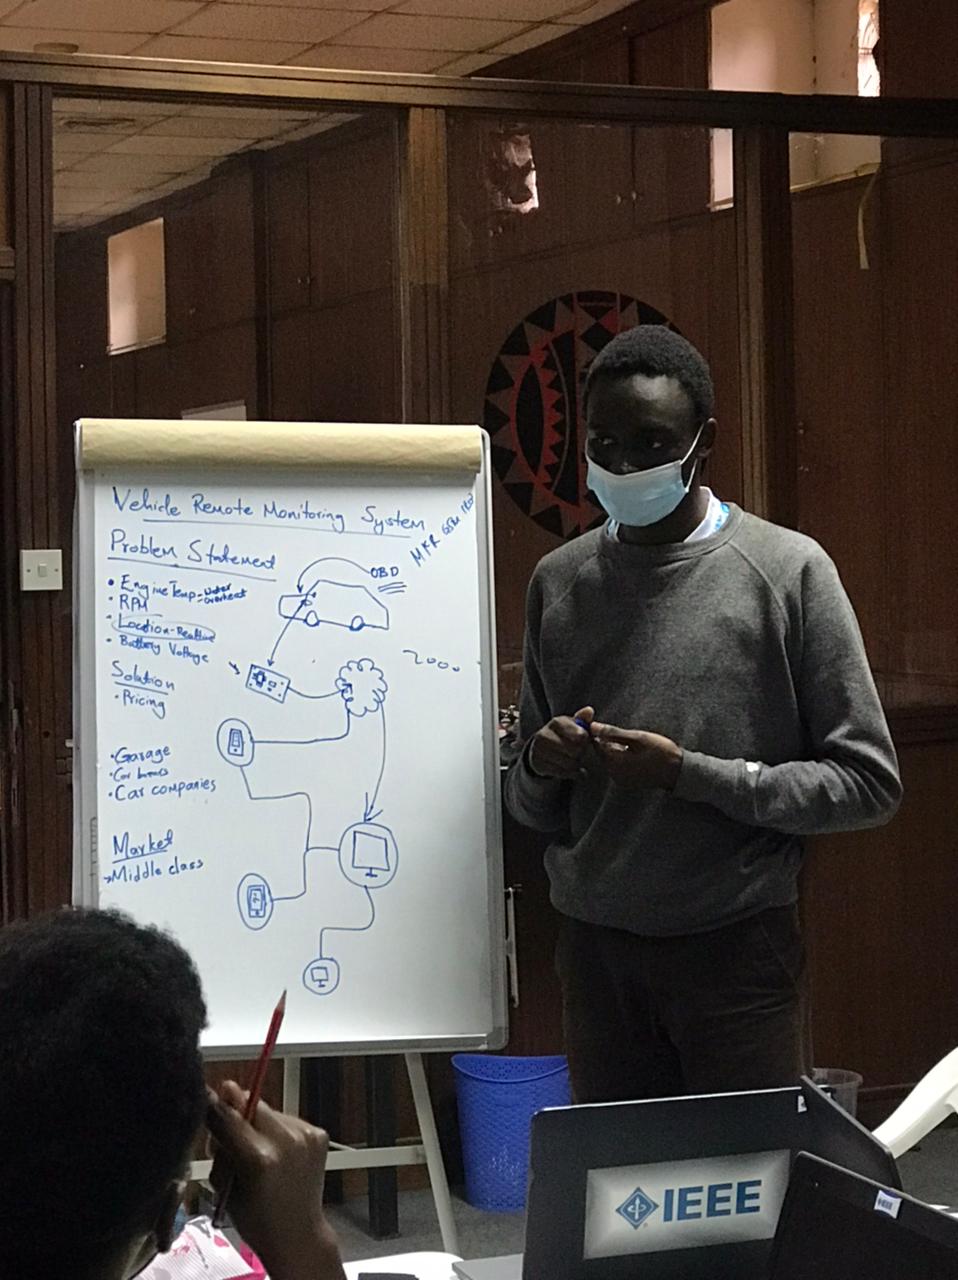 Vehicle Remote Monitoring System
MKR GSM 1400
Problem Statement
OBD
• Engine Temp - water
overheat
• RPM
• Location - Realtime
• Battery Voltage
2000
Solution
• Pricing
• Garage
• Car
• Car companies
Market
→ Middle class
IEEE